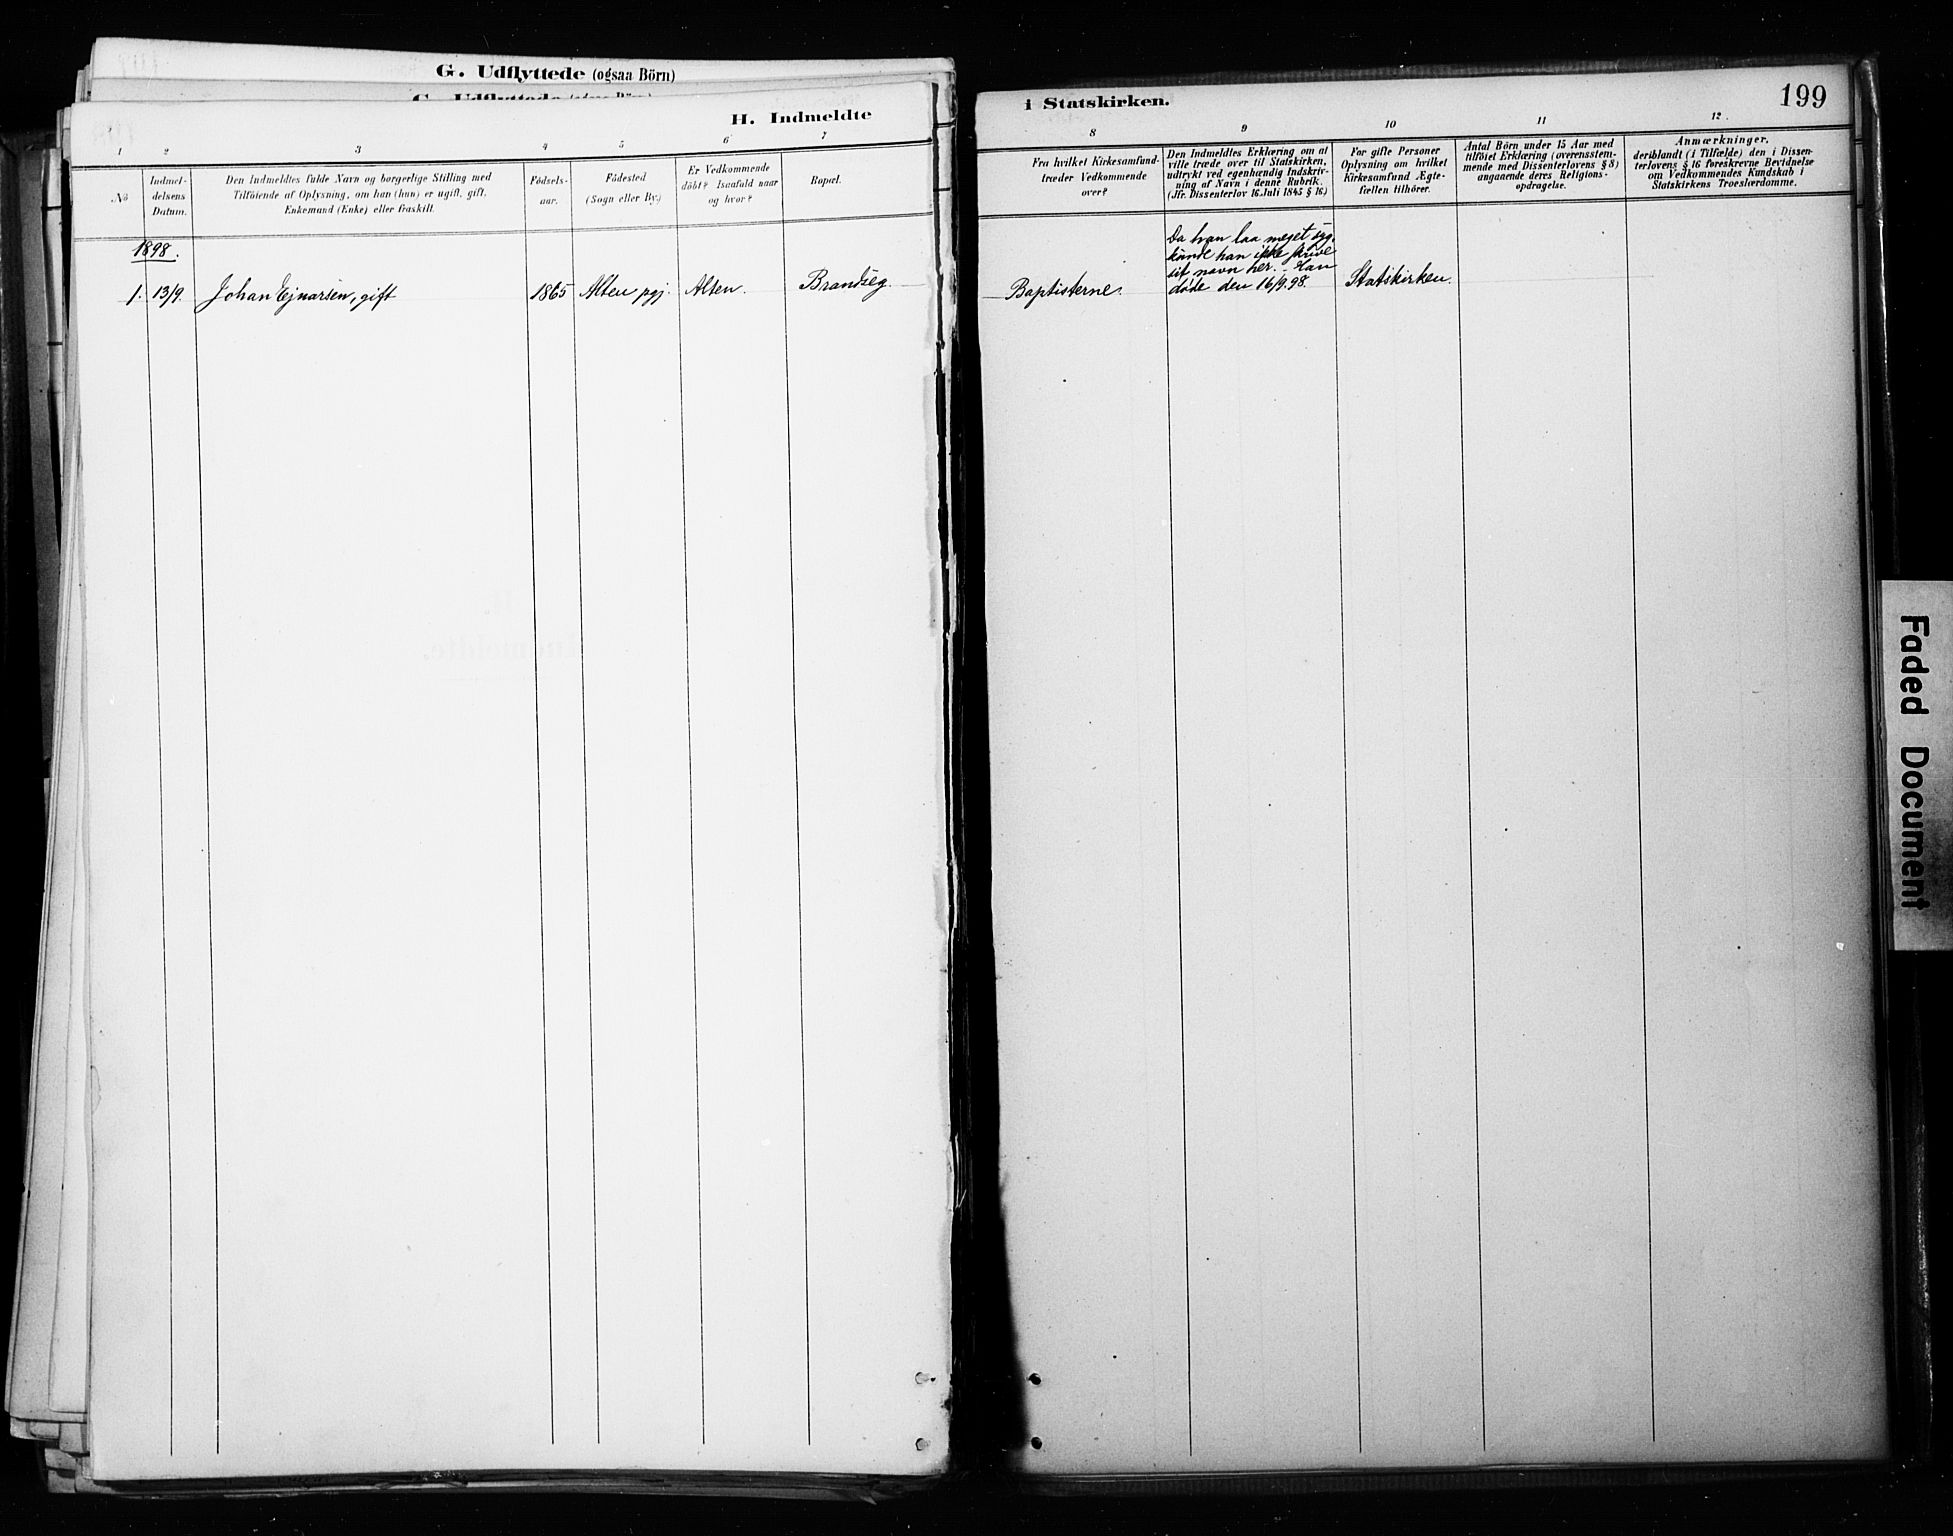 G. Udflyttede (ogsaa Börn)
G. Udflyttede (ogsaa Börn)
H. Indmeldte
1 2 3 4 5 6 7
No
Indmel-
delsens
Datum.
Den Indmeldtes fulde Navn og borgerlige Stilling med
Tilföiende af Oplysning, om han (hun) er ugift, gift,
Enkemand (Enke) eller fraskilt.
Födsels-
aar.
Födested
(Sogn eller By.)
Er Vedkommende
döbt? Isaafald naar
og hvor?
Bopæl.
1898.
1. 13/9. Johan Ejnarsen, gift 1865 Alten pgj. Alten.
i Statskirken.
199
8 9 10 11 12.
Fra hvilket Kirkesamfund
træder Vedkommende
over?
Den Indmeldtes Erklæring om at
ville træde over til Statskirken,
udtrykt ved egenhændig Indskriv-
ning af Navn i denne Rubrik.
(Jfr. Dissenterlov 16 Juli 1845 § 16)
For gifte Personer
Oplysning om hvilket
Kirkesamfund Ægte-
fællen tilhörer.
Antal Börn under 15 Aar med
tilföiet Erklæring (overensstem-
mende med Dissenterlovens § 8)
angaaende deres Religions-
opdragelse.
Anmærkninger,
deriblandt (i Tilfælde) den i Dissen-
terlovens § 16 foreskrevne Bevidnelse
om Vedkommendes Kundskab i
Statskirkens Troeslærdomme.
Baptisterne.
Da han laa meget syg,
kunde han ikke skrive
sit navn her. – Han
døde den 16/9.98.
Statskirken.
Faded Document